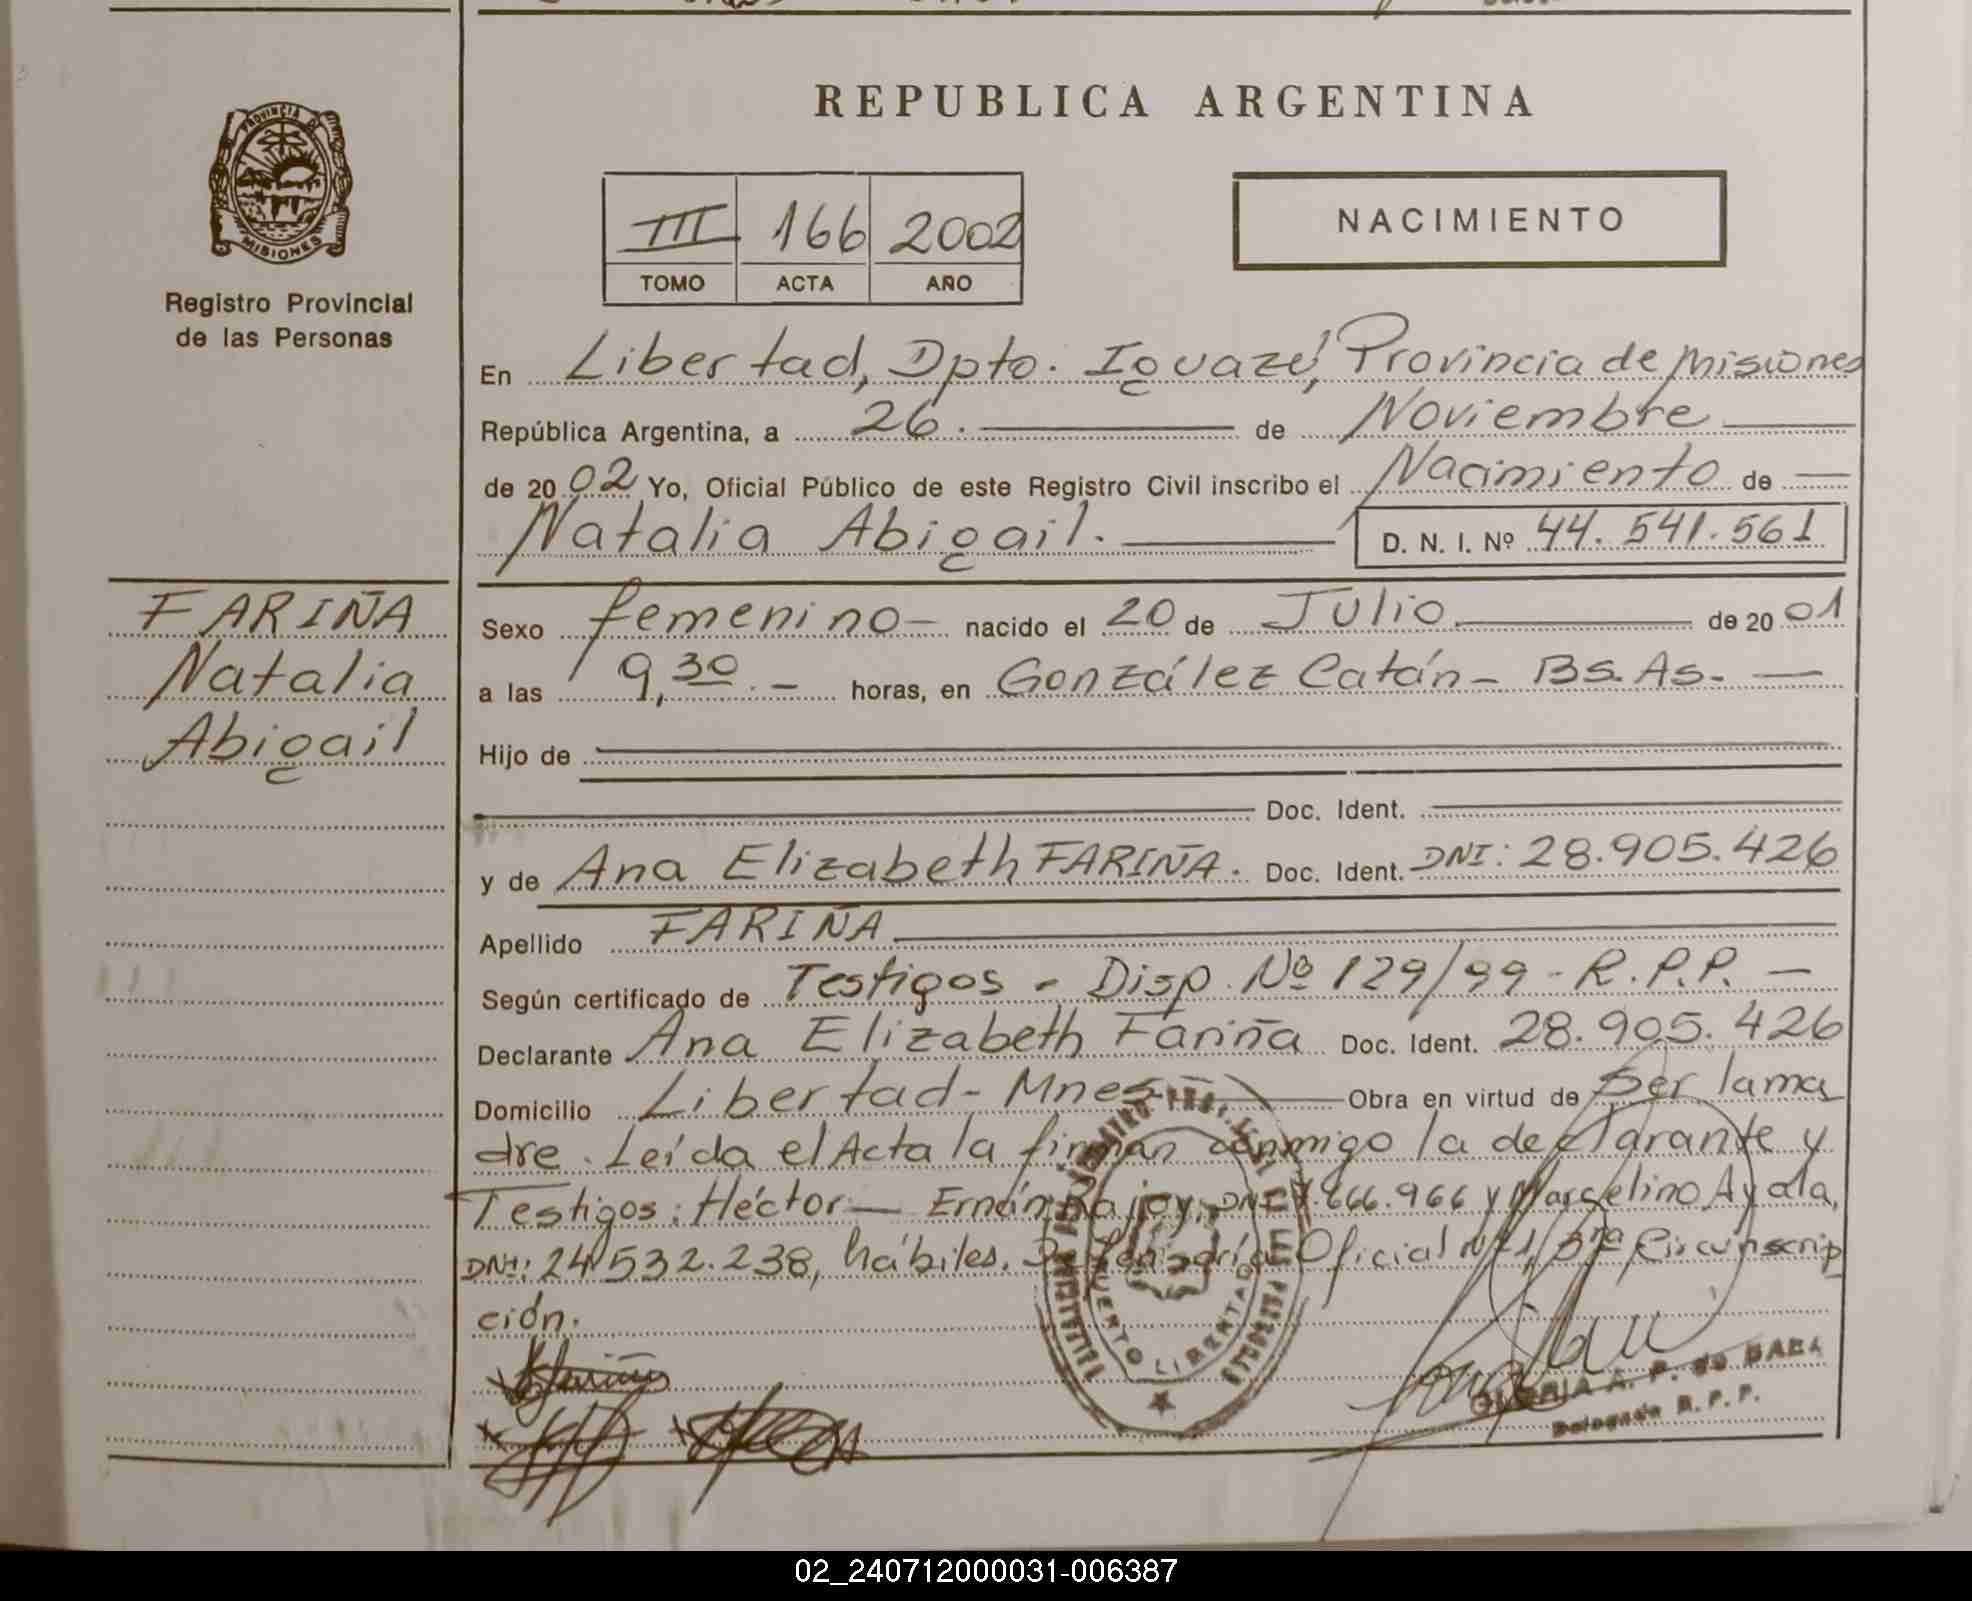 REPUBLICA ARGENTINA
PROVINCIA DE
MISIONES
Registro Provincial
de las Personas
III 166 2002
TOMO ACTA AÑO
NACIMIENTO
En Libertad, Dpto. Iguazú, Provincia de Misiones
República Argentina, a 26. de Noviembre
de 2002 Yo, Oficial Público de este Registro Civil inscribo el Nacimiento de
Natalia Abigail.
D. N. I. Nº 44.541.561
FARIÑA
Natalia
Abigail
Sexo femenino - nacido el 20 de Julio. de 2001
a las 9,30.- horas, en González Catán - Bs. As. -
Hijo de
Doc. Ident.
y de Ana Elizabeth FARIÑA. Doc. Ident. DNI: 28.905.426
Apellido FARIÑA
Según certificado de Testigos - Disp. Nº 129/99 - R.P.P. -
Declarante Ana Elizabeth Fariña Doc. Ident. 28.905.426
Domicilio Libertad - Mnes - Obra en virtud de ser la ma
dre. Leída el Acta la firman conmigo la declarante y
Testigos: Héctor - Ernán DNI .666.966 y Marcelino Ayala,
DNI: 24.532.238, hábiles. Oficial Nº 1, 3ra Circunscrip
ción.
LIBERTAD
A. P. de BAEZ
Delegada R.P.P.
02_240712000031-006387